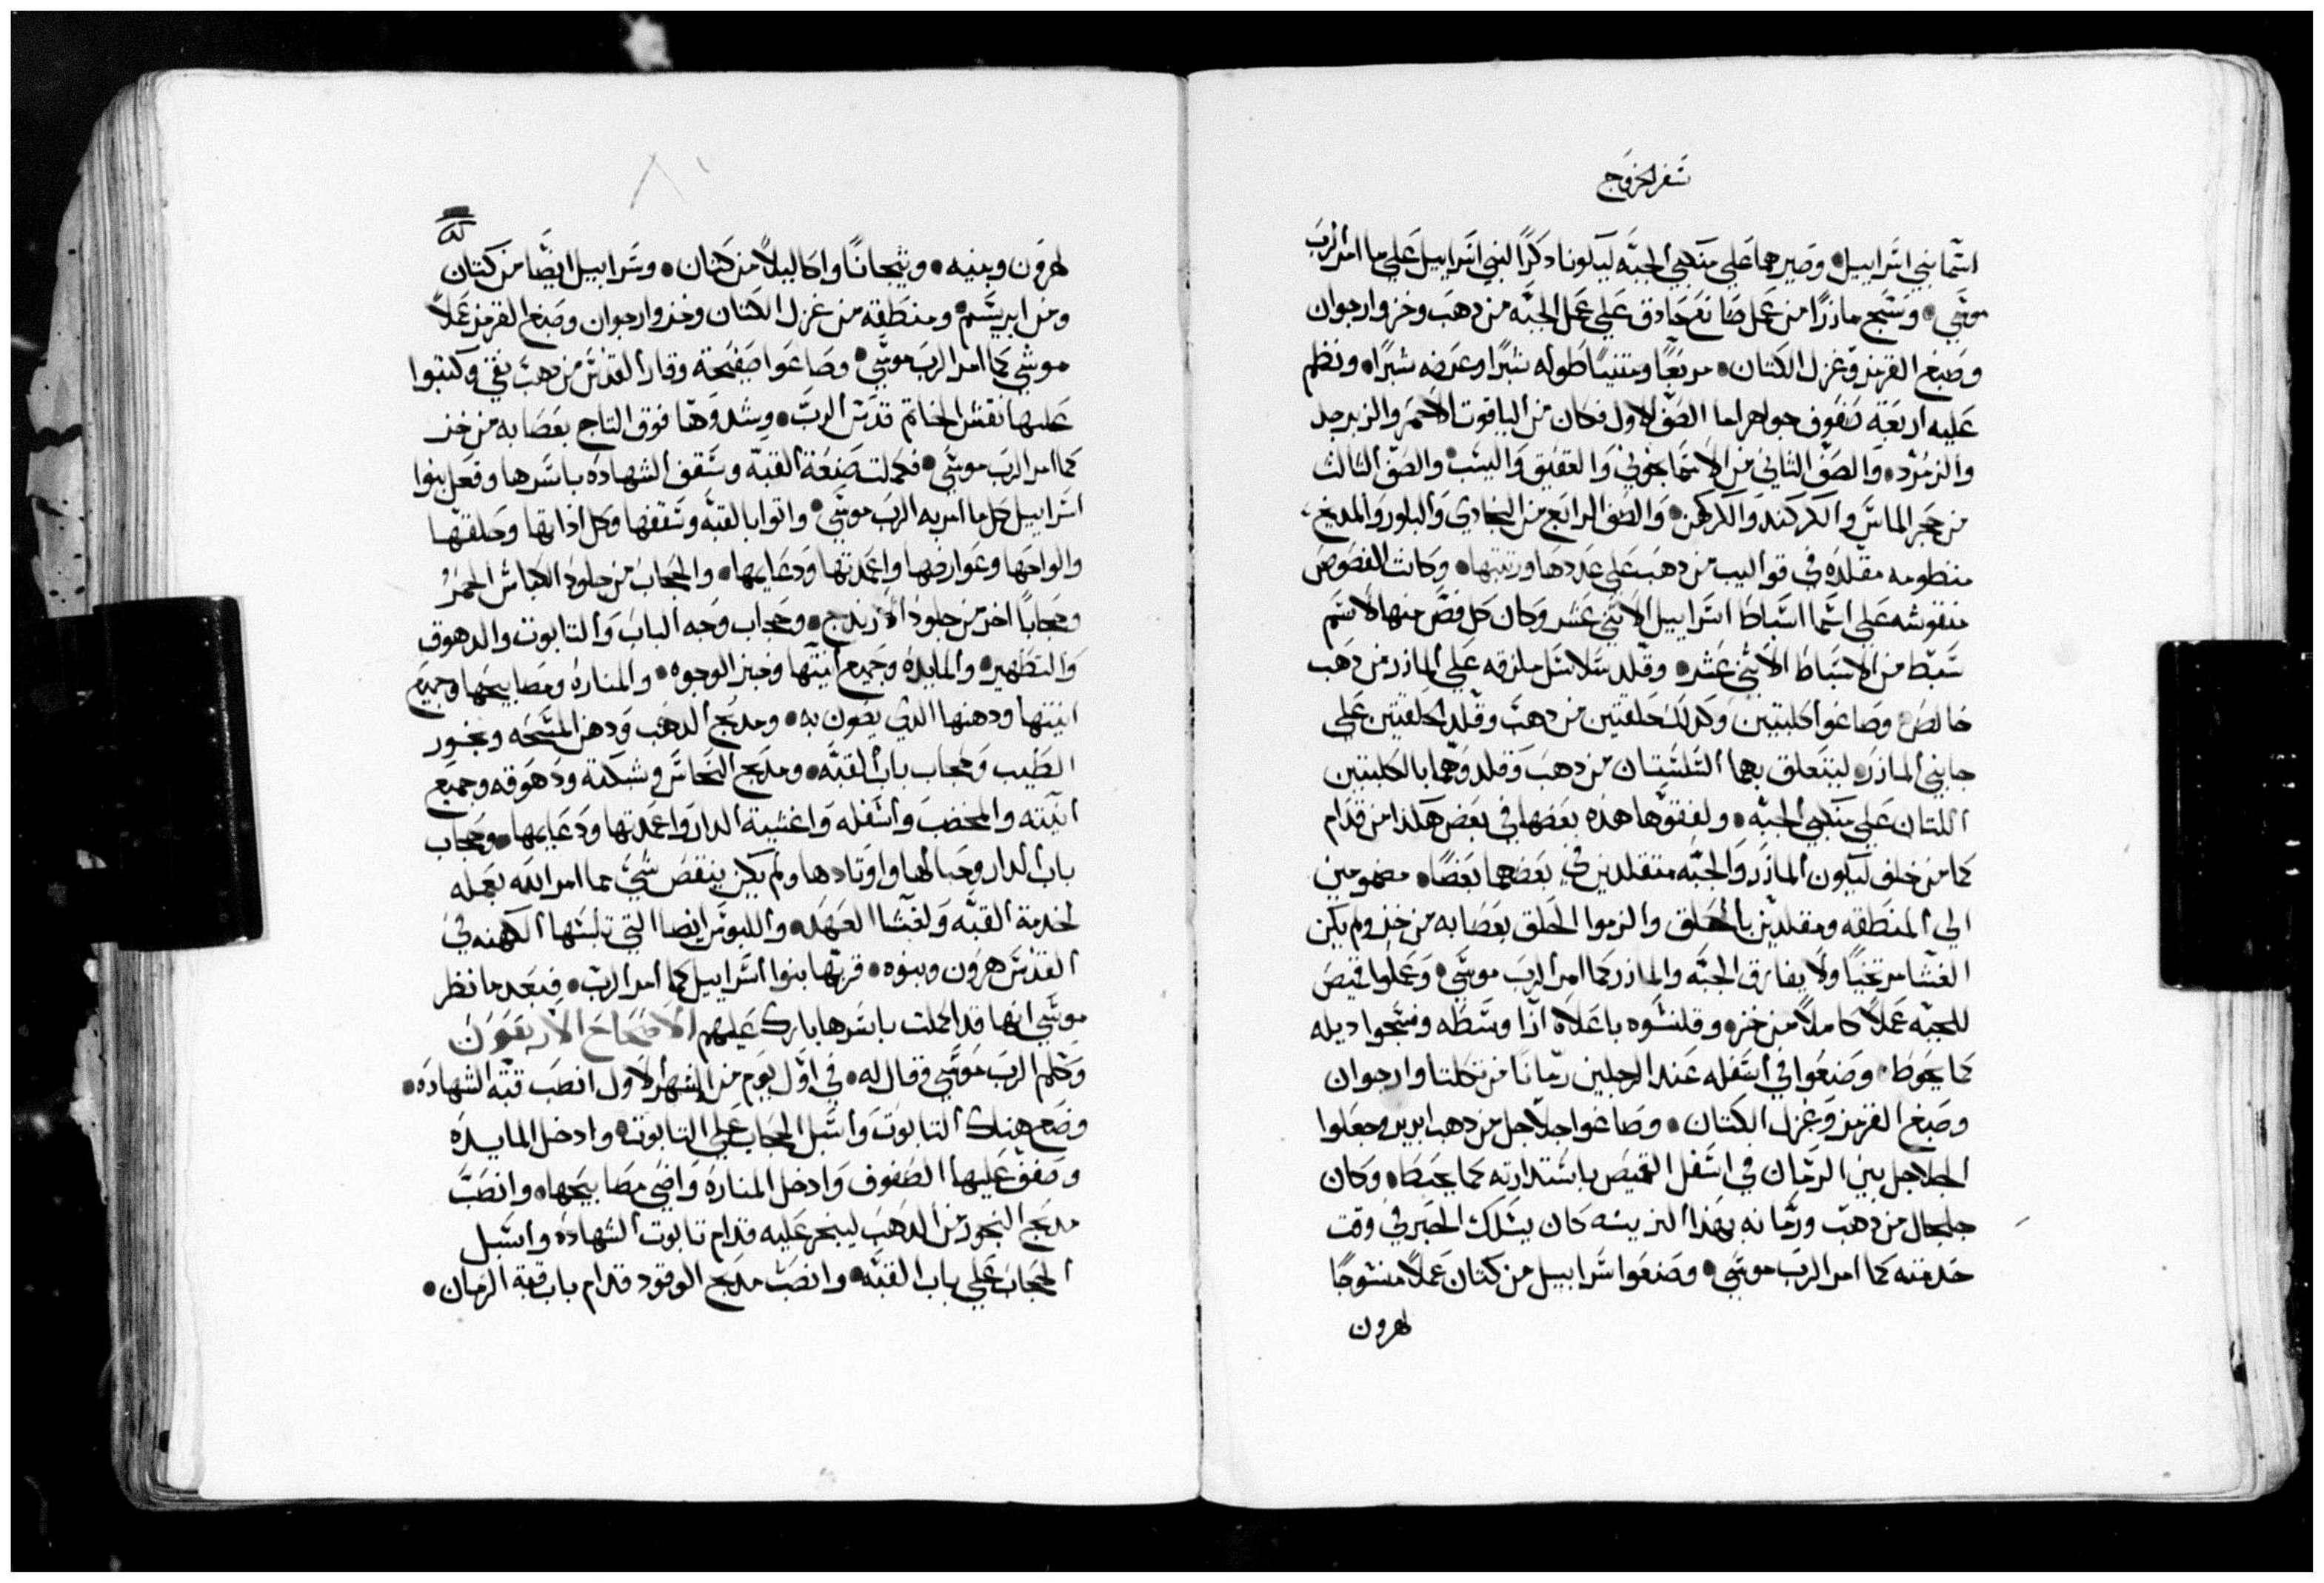 سفر الخروج
اسما بني اسراييل • وصيرها علي منكبي الجبه ليكونا ذكرًا لبني اسراييل علي ما امر الرب
موسي • ونسج ماذرًا من عمل صانع حاذق علي عمل الجبه من دهب وخز وارجوان
وصبغ القرمز وغزل الكتان • مربعًا ومثنيًا طوله شبرًا وعرضه شبرًا • ونظم
عليه اربعة صفوف جواهر اما الصف الاول فكان من الياقوت الاحمر والزبرجد
والزمرد • والصف الثاني من الاسمانجوني والعقيق واليشب • والصف الثالث
من حجر الماس والكركند والكركهن • والصف الرابع من البجادي والبلور والمديح
منطومه مقلده في قواليب من دهب علي عددها ورتبتها • وكانت الفصوص
منقوشه علي اسما اسباط اسراييل الاثني عشر وكان كل فص منها لاسم
سبط من الاسباط الاثني عشر • وقلد سلاسل ملزقه علي الماذر من دهب
خالص • وصاغوا كلبتين وكدلك حلقتين من دهب وقلد الحلقتين علي
جابني الماذر • ليتعلق بهما السلسلتان من دهب وقلدوهما بالكلبتين
اللتان علي منكبي الجبه • ولفقوها هذه بعضها في بعض هكدا من قدام
كما من خلف ليكون الماذر والجبه متقلدين في بعضهما بعضًا • مضمومين
الي المنطقه ومقلدين بالحلق والزموا الحلق بعصابه من خز ولم يكن
الغشا مرتخيًا ولا يفارق الجبه والماذر كما امر الرب موسي • وعملوا قميص
للجبه عملاً كاملاً من خز • وقلنسوه باعلاه ازا وسطه ونسجوا ديله
كما يحوط • وصنعوا في اسفله عند الرجلين رمانا من تكلتا وارجوان
وصبغ القرمز وغزل الكتان • وصاغوا جلاجل من دهب ابريز وجعلوا
الجلاجل بين الرمان في اسفل القميص باستدارته كما يحيط • وكان
جلجال من دهب ورمانه بهذا الزينه كان يسلك الحبر في وقت
خدمته كما امر الرب موسي • وصنعوا سرابيل من كتان عملاً منسوجًا
لهرون
لهرون وبنيه • وتيجانًا واكاليلاً من كتان • وسرابيل ايضًا من كتان
ومن ابريسم • ومنطقه من غزل الكتان وخز وارجوان وصبغ القرمز عملاً
موشي كما امر الرب موسي • وصاغوا صفيحة وقار القدس من دهب نقي وكتبوا
عليها نقش الخاتم قدس الرب • وشدوها فوق التاج بعصابه من خز
كما امر الرب موسي • فكملت صنعة القبه وسقف الشهاده باسرها وفعل بنوا
اسراييل كل ما امر به الرب موسي • واتوا بالقبه وسقفها وكل اداتها وحلقها
والواحها وعوارضها واعمدتها ودعايمها • والحجاب من جلود الكباش الحمر
وحجابًا اخر من جلود الارندج • وحجاب وجه الباب والتابوت والدهوق
والتطهير • والمايده وجميع انيتها وخبز الوجوه • والمناره ومصابيحها وجميع
انيتها ودهنها الدي يضون به • ومدبح الدهب ودهن المسحه وبخور
الطيب وحجاب باب القبه • ومدبح النحاس وشبكته ودهوقه وجميع
انيته والمخضب واسفله واغشية الدار واعمدتها ودعايمها • وحجاب
باب الدار وحبالها واوتادها ولم يكن ينقص شي مما امر الله بعمله
لخدمة القبه ولغشا العهد • واللبوس ايضا التي تلبسها الكهنه في
القدس هرون وبنوه • قربها بنوا اسراييل كما امر الرب • فبعد ما نظر
موسي انها قد اكملت باسرها بارك عليهم الاصحاح الاربعون
وكلم الرب موسي وقال له • في اول يوم من الشهر الاول انصب قبة الشهاده •
وضع هناك التابوت واسبل الحجاب علي التابوت • وادخل المايده
وصفف عليها الصفوف وادخل المناره واضي مصابيحها • وانصب
مدبح البخور من الدهب ليبخر عليه قدام تابوت الشهاده واسبل
الحجاب علي باب القبه • وانصب مدبح الوقود قدام باب قبة الزمان •